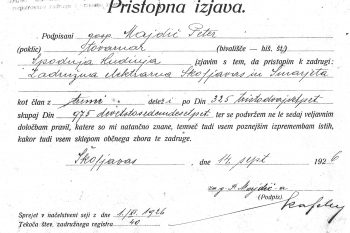 Pristopna izjava.
Podpisani gosp. Majdič Peter
(poklic) tovarnar (bivališče — hiš. št.)
Spodnja Hudinja izjavim s tem, da pristopim k zadrugi:
Zadružna elektrarna Škofjavas in Šmarjeta
kot član z tremi deleži po Din 325 tristodvajsetpet
skupaj Din 975 devetstosedemdesetpet ter se podvržem ne le sedaj veljavnim
določbam pravil, katere so mi natančno znane, temveč tudi vsem poznejšim izpremembam istih,
kakor tudi vsem sklepom občnega zbora te zadruge.
Škofjavas, dne 14. sept. 1926
za P. Majdič-a
(Podpis)
Sprejet v načelstveni seji z dne 1./XI. 1926
Tekoča štev. zadružnega registra 40